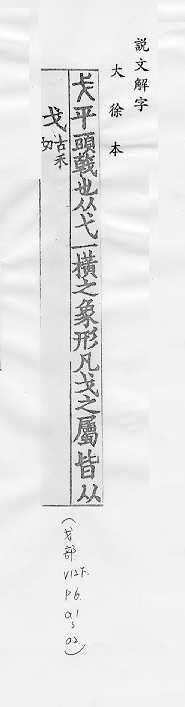 説文解字
大徐本
戈平頭戟也从弋一橫之象形凡戈之屬皆从
戈古禾切
(戈部
V12下.
P6.
a1
~
a2.)